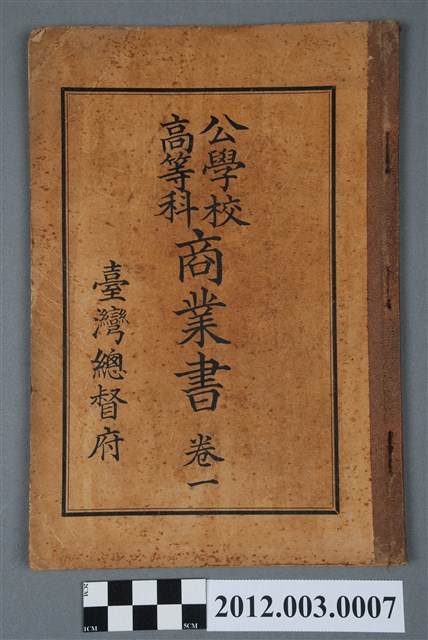 公學校
高等科
商業書 卷一
臺灣總督府
2CM
1CM
5CM
2012.003.0007